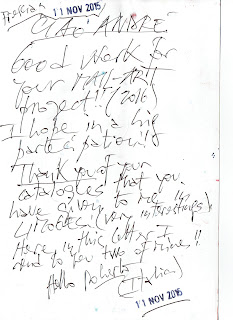 11 NOV 2015
CIAO ANDRÉ
Good work for
your MAIL-ART
Project!! (2016)
I hope in a big
partecipation!!
Thank you of your
catalogues that you
have given to me in
(very interestings).
Here, in this letter I
send to you two of mines!!
Hello Roberto
(Italia)
11 NOV 2015